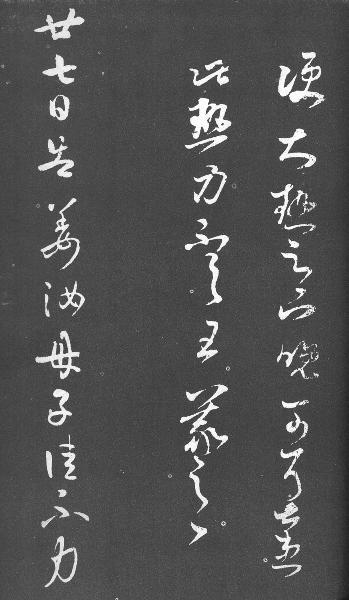 便大熱足下晚可耳甚患
此熱力不具王羲之上
廿七日告姜汝母子佳不力